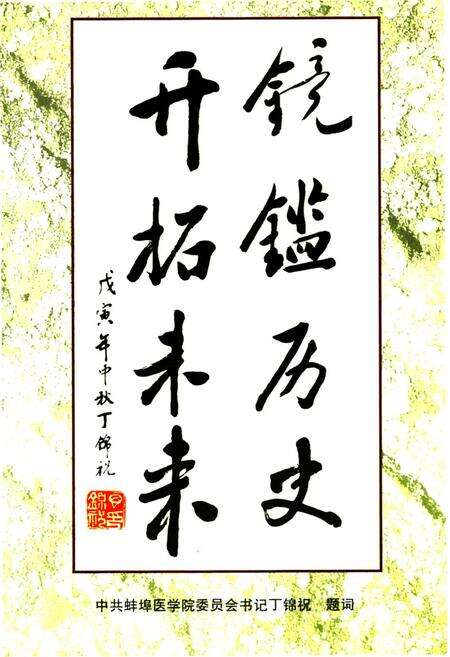 镜鑑历史
开拓未来
戊寅年中秋丁锦祝
中共蚌埠医学院委员会书记丁锦祝 题词